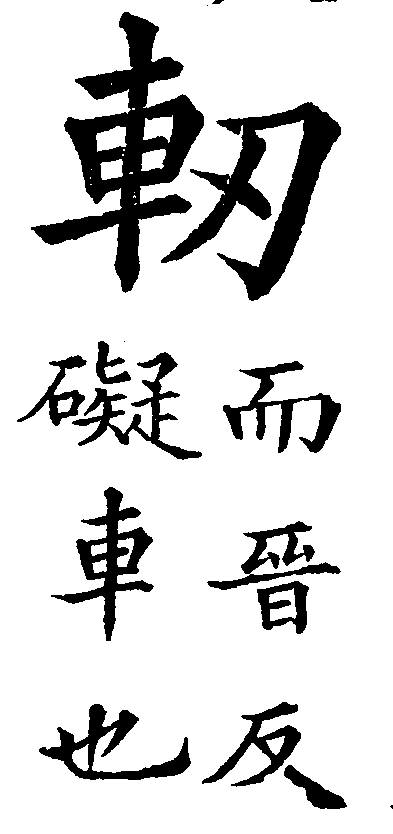 軔
而晉反
礙車也